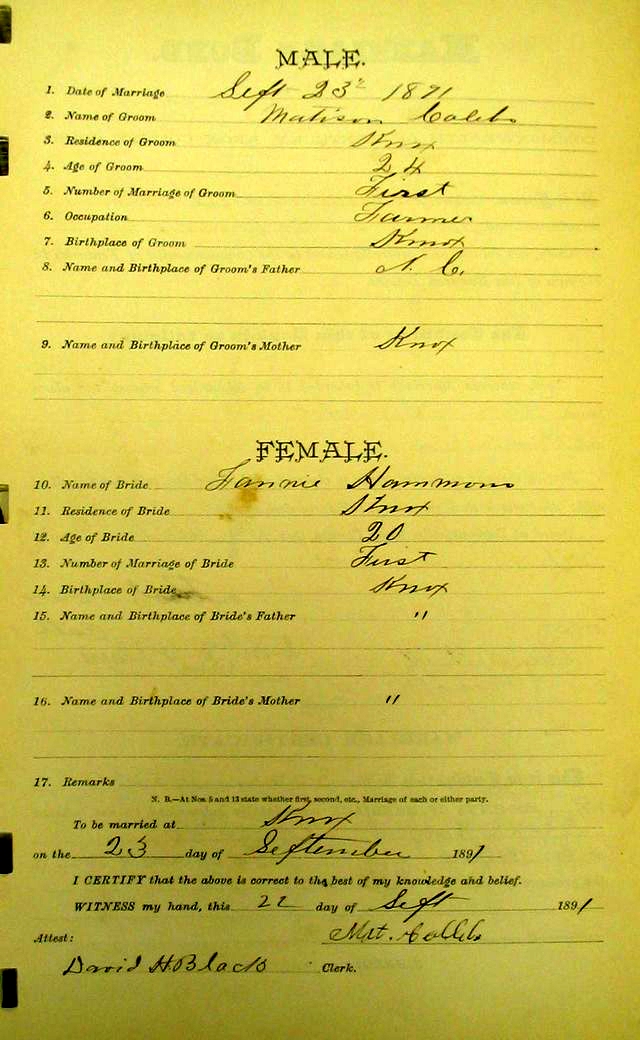 MALE.
1. Date of Marriage Sept 23rd 1891
2. Name of Groom Matison Calebs
3. Residence of Groom Knox
4. Age of Groom 24
5. Number of Marriage of Groom First
6. Occupation Farmer
7. Birthplace of Groom Knox
8. Name and Birthplace of Groom's Father N. C.
9. Name and Birthplace of Groom's Mother Knox
FEMALE.
10. Name of Bride Fannie Hammons
11. Residence of Bride Knox
12. Age of Bride 20
13. Number of Marriage of Bride First
14. Birthplace of Bride Knox
15. Name and Birthplace of Bride's Father "
16. Name and Birthplace of Bride's Mother "
17. Remarks
N. B.—At Nos. 5 and 13 state whether first, second, etc., Marriage of each or either party.
To be married at Knox
on the 23 day of September 1891
I CERTIFY that the above is correct to the best of my knowledge and belief.
WITNESS my hand, this 22 day of Sept 1891
Mat. Collebs
Attest:
David H Black Clerk.